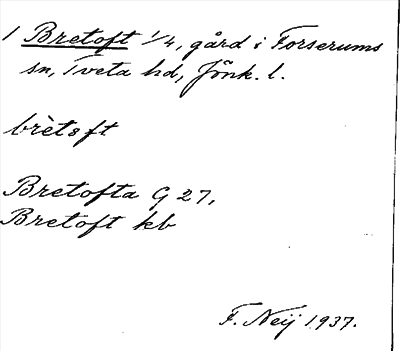 1 Bretoft 1/4, gård i Forserums
sn, Tveta hd, Jönk. l.
brètoft
Bretofta G 27,
Bretoft kb
F. Neij 1937.